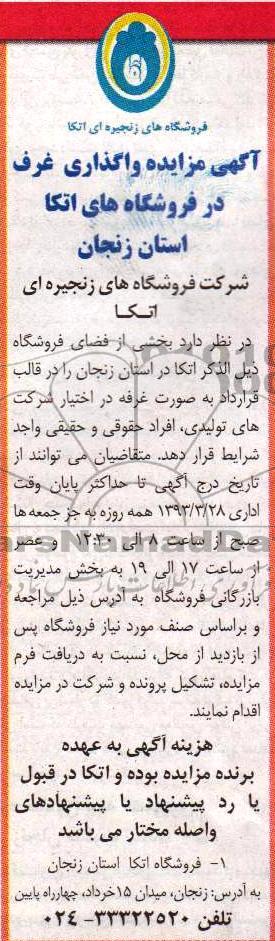 فروشگاه های زنجیره ای اتکا
آگهی مزایده واگذاری غرف
در فروشگاه های اتکا
استان زنجان
شرکت فروشگاه های زنجیره ای
اتـکـا
در نظر دارد بخشی از فضای فروشگاه
ذیل الذکر اتکا در استان زنجان را در قالب
قرارداد به صورت غرفه در اختیار شرکت
های تولیدی، افراد حقوقی و حقیقی واجد
شرایط قرار دهد. متقاضیان می توانند از
تاریخ درج آگهی تا حداکثر پایان وقت
اداری ۱۳۹۳/۳/۲۸ همه روزه به جز جمعه ها
صبح از ساعت ۸ الی ۱۲:۳۰ و عصر
از ساعت ۱۷ الی ۱۹ به بخش مدیریت
بازرگانی فروشگاه به آدرس ذیل مراجعه
و براساس صنف مورد نیاز فروشگاه پس
از بازدید از محل، نسبت به دریافت فرم
مزایده، تشکیل پرونده و شرکت در مزایده
اقدام نمایند.
هزینه آگهی به عهده
برنده مزایده بوده و اتکا در قبول
یا رد پیشنهاد یا پیشنهادهای
واصله مختار می باشد
۱- فروشگاه اتکا استان زنجان
به آدرس: زنجان، میدان ۱۵خرداد، چهارراه پایین
تلفن ۳۳۳۲۲۵۲۰- ۰۲۴